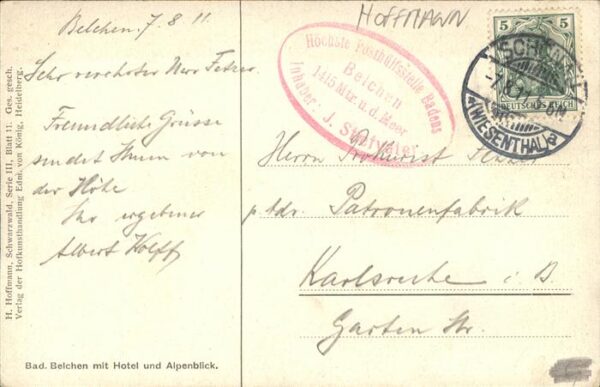 Belchen. 7. 8. 11.
HOFFMANN
Sehr verehrter Herr Fetzer.
Freundliche Grüsse
sendet Ihnen von
der Höhe
Ihr ergebener
Albert Wolff
Höchste Posthilfsstelle Badens
Belchen
1415 Mtr. ü. d. Meer
Inhaber: J. 
5 5
DEUTSCHES REICH
(WIESENTHAL)
Herrn Prokurist Fetzer
Patronenfabrik
Karlsruhe i. B.
Garten Str.
H. Hoffmann, Schwarzwald, Serie III, Blatt 11. Ges. gesch.
Verlag der Hofkunsthandlung Edm. von König, Heidelberg.
Bad. Belchen mit Hotel und Alpenblick.